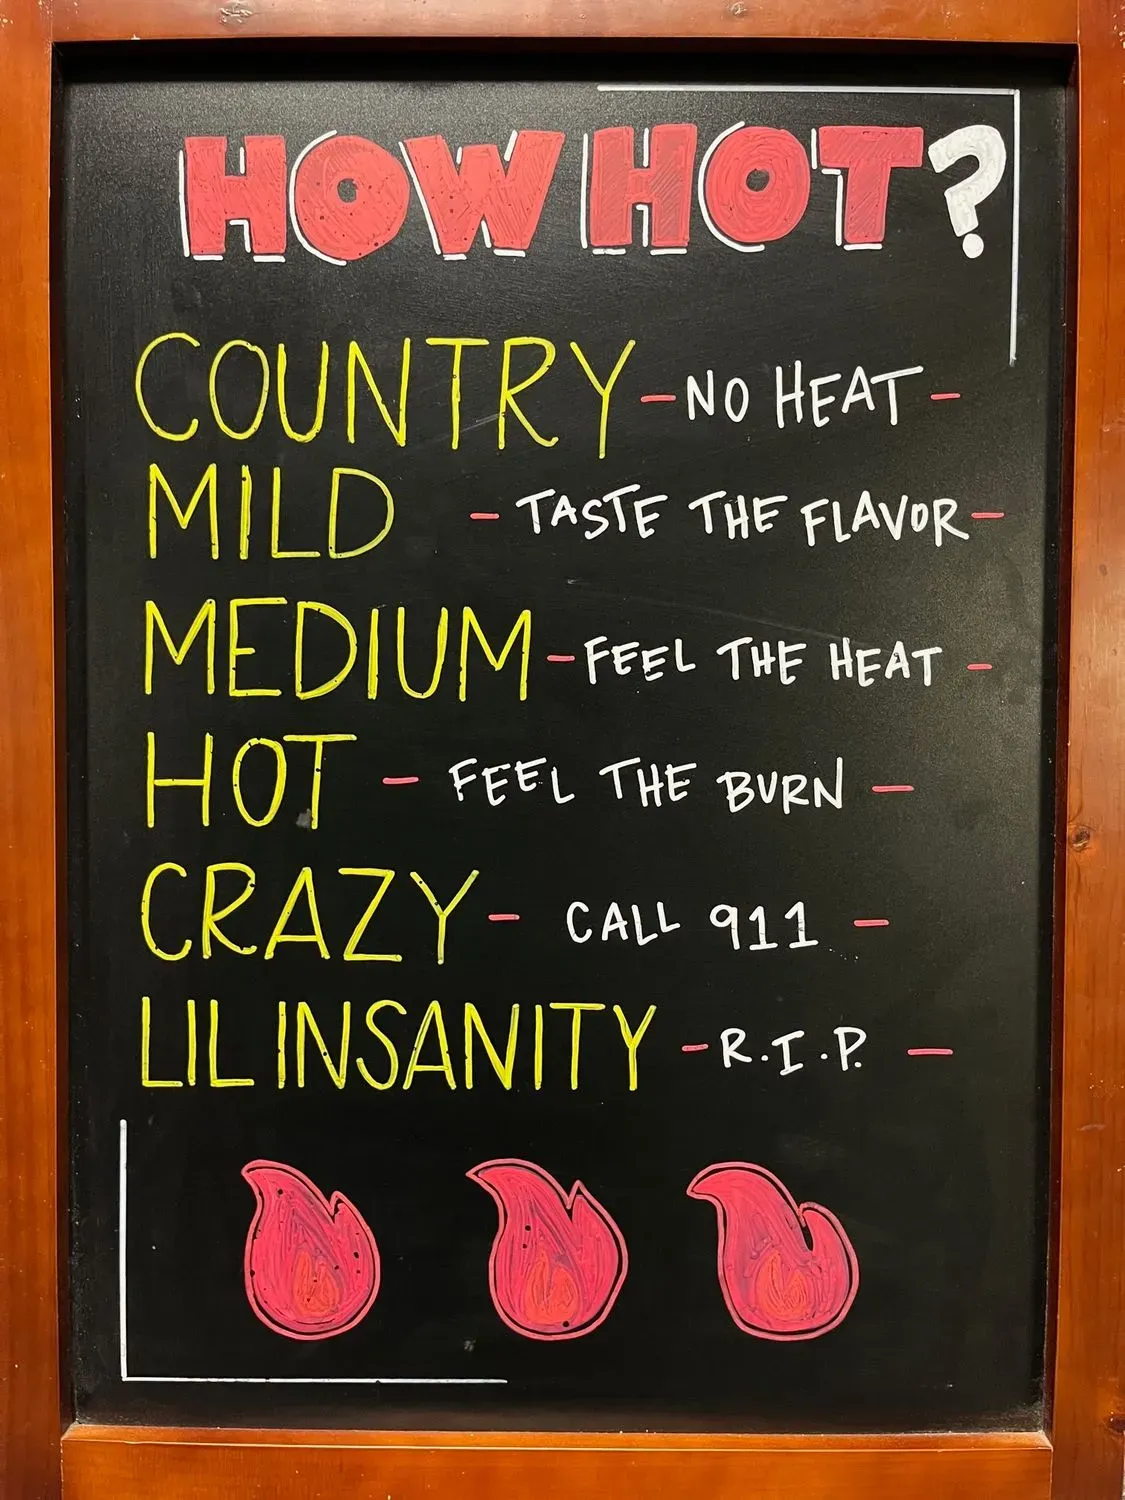 HOW HOT?
COUNTRY - NO HEAT -
MILD - TASTE THE FLAVOR -
MEDIUM - FEEL THE HEAT -
HOT - FEEL THE BURN -
CRAZY - CALL 911 -
LIL INSANITY - R.I.P. -